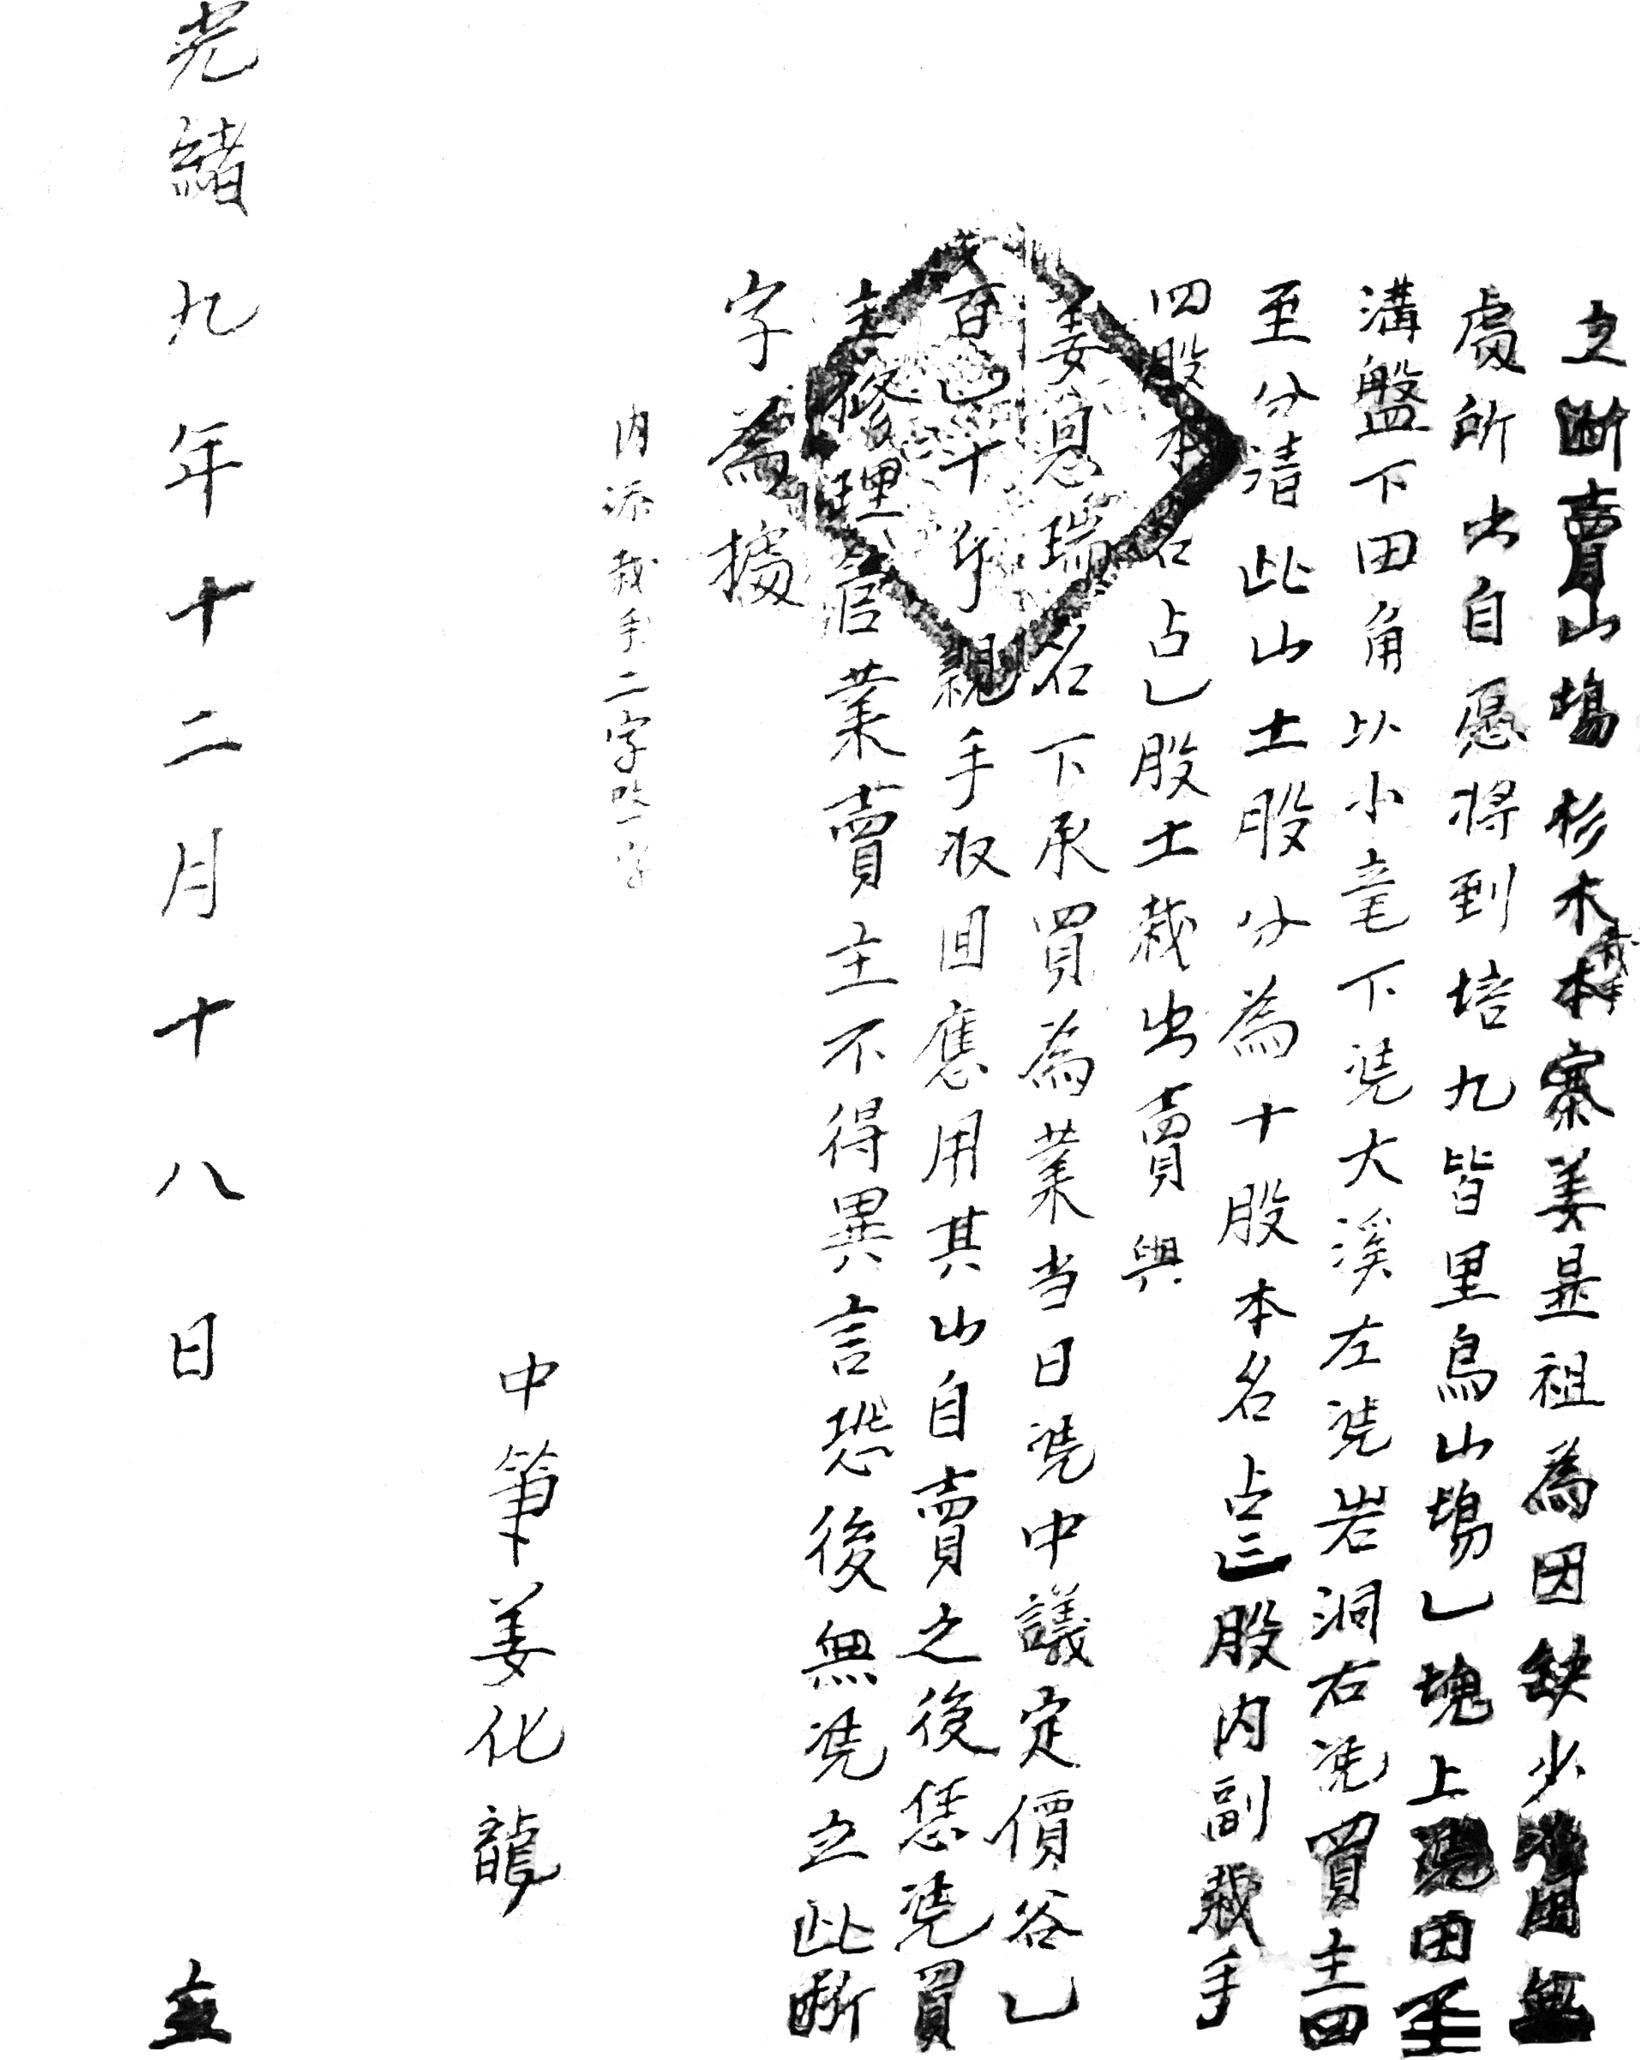 立断賣山塲杉木栽手本寨姜显祖為因缺少粮用無
處所出自愿将到培九皆里烏山塲乚塊上凴田至
溝盤下田角以小毫下凴大溪左凴岩洞右凴買主四
至分清此山土股分為十股本名占三股内副栽手
四股本名占乚股土栽出賣與
姜恩瑞名下承買為業当日凴中議定價谷乚
百乚十斤親手收囬應用其山自賣之後恁凴買
主修理管業賣主不得異言恐後無凴立此断
字為據
内添栽手二字改一字
中筆姜化龍
光緒九年十二月十八日 立